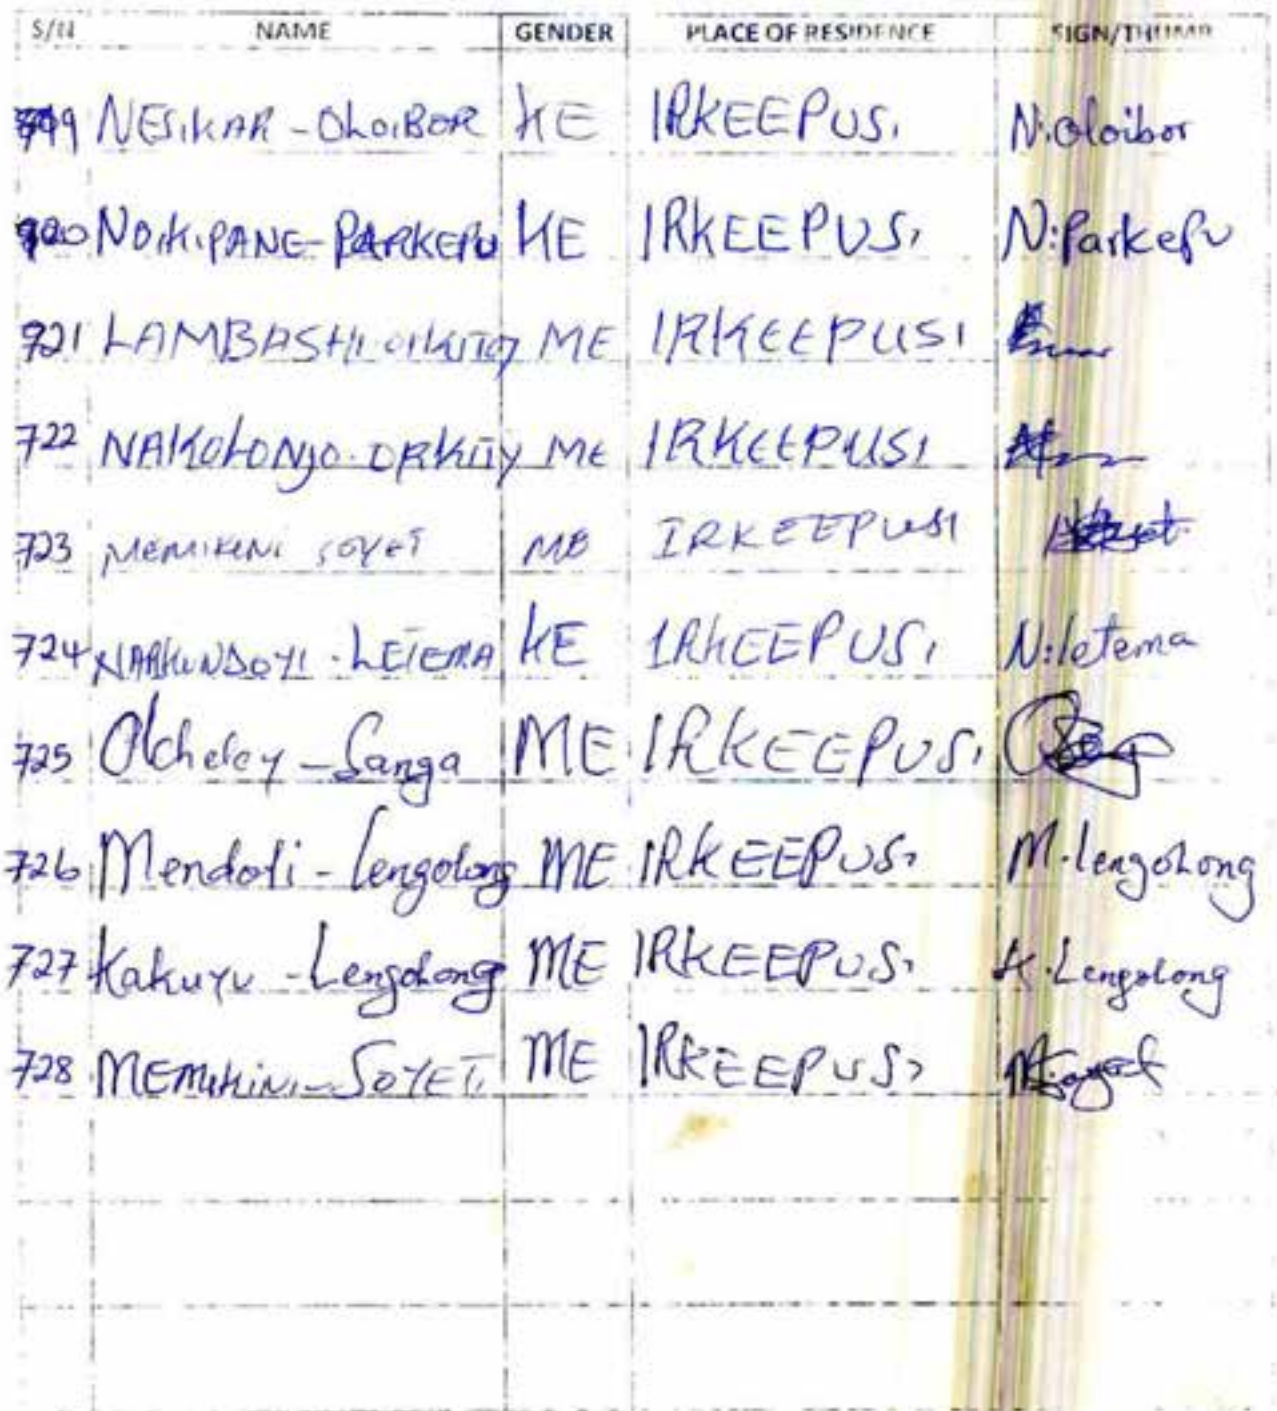 S/N NAME GENDER PLACE OF RESIDENCE SIGN/THUMB
719 NESIKAR - OLOIBOR KE IRKEEPUSI N:oloibor
720 NOIKIPANE - PARKEPU KE IRKEEPUSI N:Parkepu
721 LAMBASHI ME IRKEEPUSI
722 NAKOLONJO. ORKITY ME IRKEEPUSI
723 MEMIKINI SOYET ME IRKEEPUSI
724 NARKUNDOYI - LETEMA KE IRKEEPUSI N:letema
725 Olcheley - Sanga ME IRKEEPUSI
726 Mendoti - lengolong ME IRKEEPUSI M.lengoLong
727 Kakuyu - Lengolong ME IRKEEPUSI K.Lengolong
728 MEMIKINI - SOYET. ME IRKEEPUSI